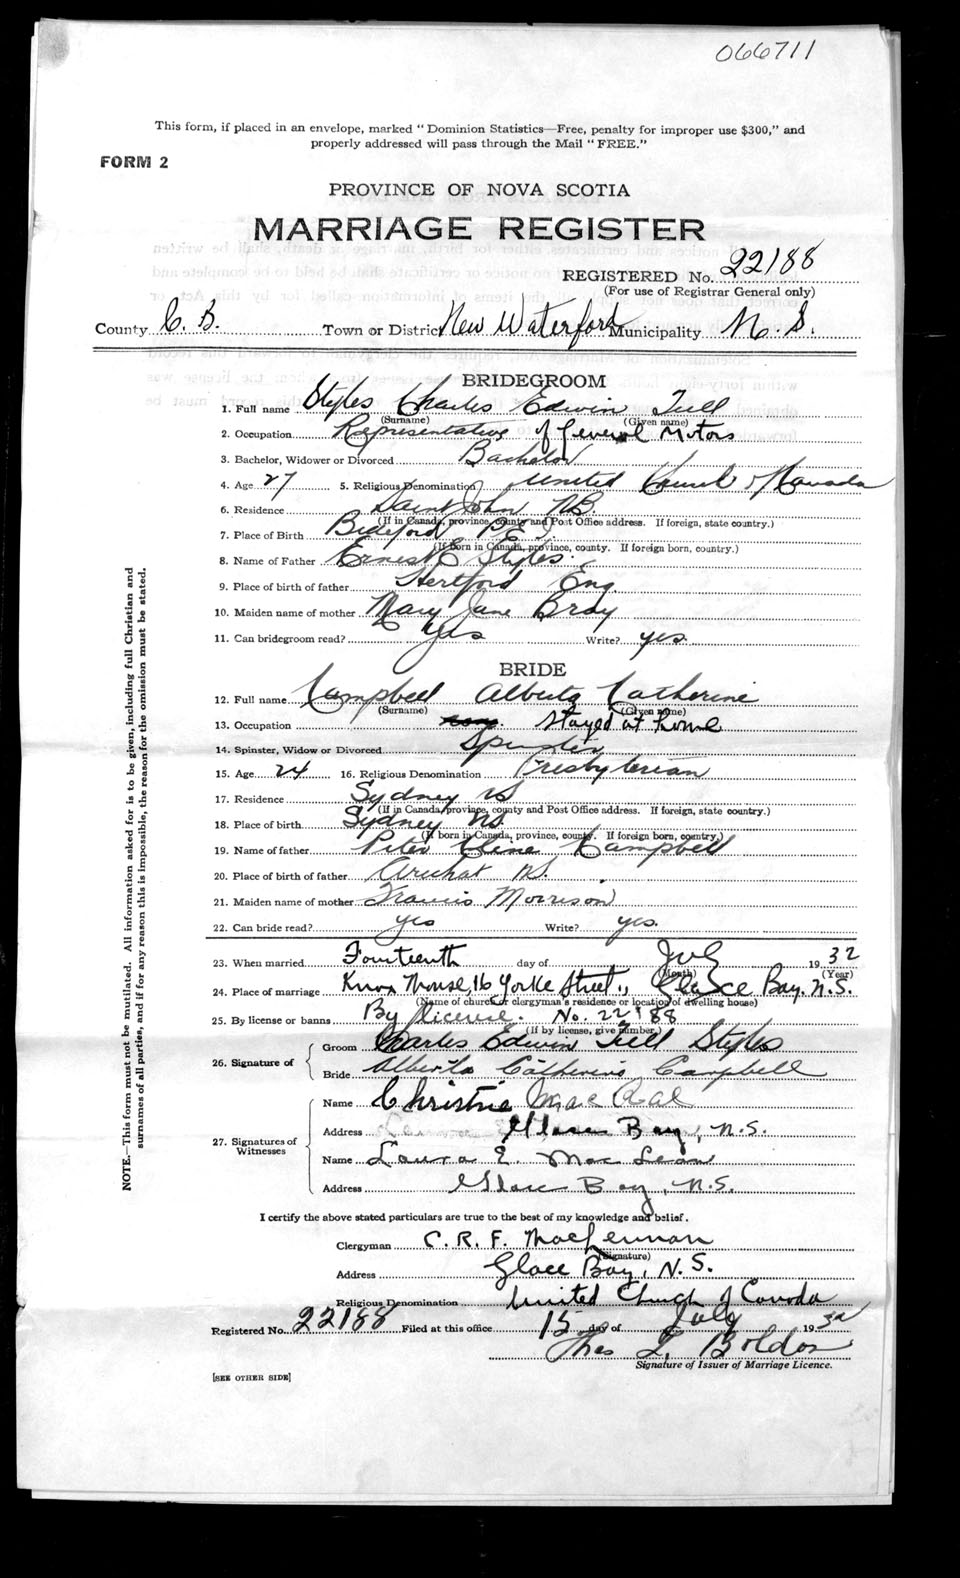 066711
This form, if placed in an envelope, marked "Dominion Statistics—Free, penalty for improper use $300," and
properly addressed will pass through the Mail "FREE."
FORM 2
PROVINCE OF NOVA SCOTIA
MARRIAGE REGISTER
REGISTERED No. 22188
(For use of Registrar General only)
County C. B. Town or District New Waterford Municipality N. S.
BRIDEGROOM
1. Full name Styles Charles Edwin Tull
(Surname) (Given name)
2. Occupation Representative of General Motors
3. Bachelor, Widower or Divorced Bachelor
4. Age 27 5. Religious Denomination United Church of Canada
6. Residence Saint John N.B.
(If in Canada, province, county and Post Office address. If foreign, state country.)
7. Place of Birth Bideford P.E.I
(If born in Canada, province, county. If foreign born, country.)
8. Name of Father Ernest E Styles.
9. Place of birth of father Hertford Eng
10. Maiden name of mother Mary Jane Bray
11. Can bridegroom read? Yes Write? yes.
BRIDE
12. Full name Campbell Alberta Catherine
(Surname) (Given name)
13. Occupation Stayed at home
14. Spinster, Widow or Divorced Spinster
15. Age 24 16. Religious Denomination Presbyterian
17. Residence Sydney NS
(If in Canada, province, county and Post Office address. If foreign, state country.)
18. Place of birth Sydney NS.
(If born in Canada, province, county. If foreign born, country.)
19. Name of father Peter Campbell
20. Place of birth of father Arichat N.S.
21. Maiden name of mother Francis Morrison
22. Can bride read? yes Write? yes.
23. When married Fourteenth day of July 1932
(Month) (Year)
24. Place of marriage Knox Manse, 16 Yorke Street., Glace Bay. N.S.
(Name of church or clergyman's residence or location of dwelling house)
25. By license or banns By license. No. 22188
(If by license, give number)
26. Signature of
Groom Charles Edwin Tull Styles
Bride Alberta Catherine Campbell
27. Signatures of Witnesses
Name Christie Mac
Address Glace Bay, N.S.
Name Laura E. MacLean
Address Glace Bay, N.S.
I certify the above stated particulars are true to the best of my knowledge and belief.
Clergyman C. R. F. MacLennan
(Signature)
Address Glace Bay, N.S.
Religious Denomination United Church of Canada
Registered No. 22188 Filed at this office 15 day of July 1932
Thos
Signature of Issuer of Marriage Licence.
[SEE OTHER SIDE]
NOTE.—This form must not be mutilated. All information asked for is to be given, including full Christian and
surnames of all parties, and if for any reason this is impossible, the reason for the omission must be stated.